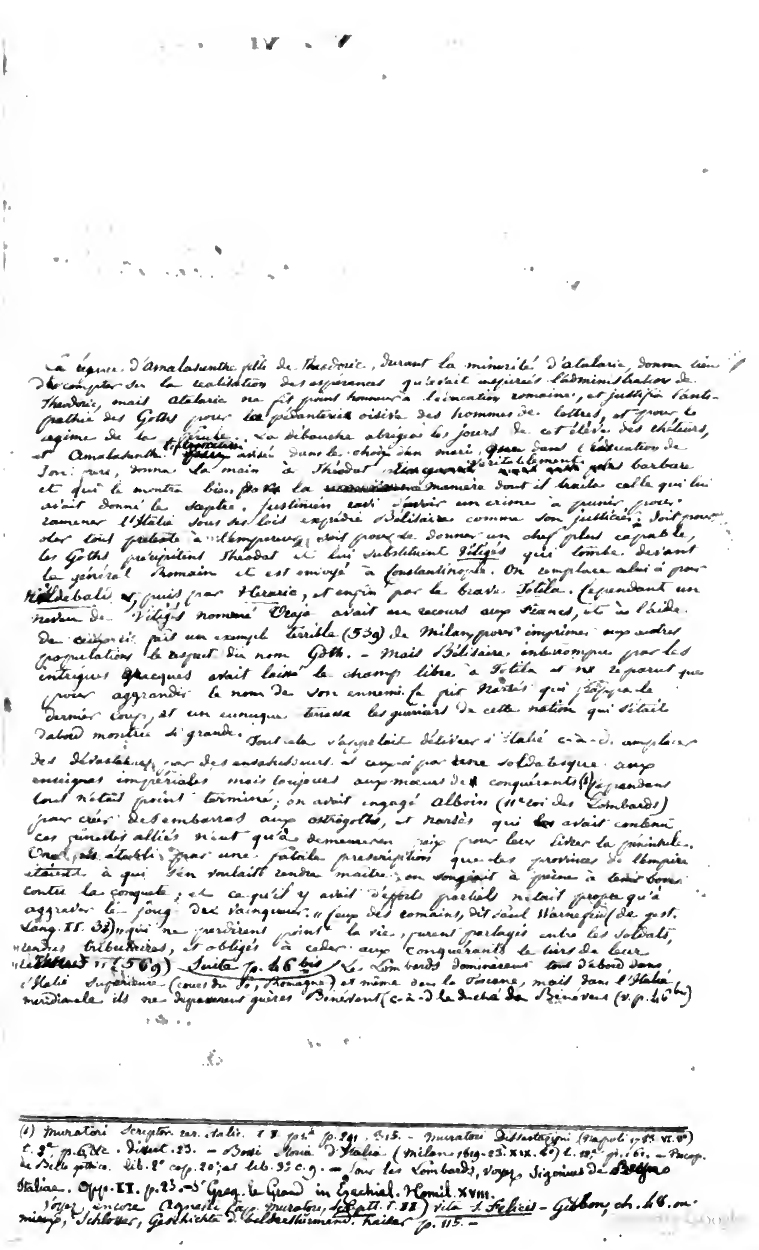 IV
La régence d'Amalasunthe fille de Theodoric, durant la minorité d'Atalaric, donna lieu
de compter sur la réalisation des esperances qu'avait l'administration de
Theodoric, mais Atalaric ne fit point honneur à l'éducation romaine, et justifia l'anti-
pathie des Goths pour la pédanterie oisive des hommes de lettres, et pour le
regime de la ferule. La débauche abrégea les jours de cet élève des rhéteurs,
et Amalasunthe dans le choix d'un mari, dans l'
son pere, donna la main à Théodat veritablement barbare
et qui le montra bien par la maniere dont il traita celle qui lui
avait donné le sceptre. Justinien ravi d'avoir un crime à punir pour
ramener l'Italie sous ses lois expédie Bélisaire comme son justicier; soit pour
ôter tout prétexte à l'empereur, soit pour se donner un chef plus capable,
les Goths précipitent Theodat et lui substituent Vitigès qui tombe devant
le général Romain et est envoyé à Constantinople. On remplace celui-ci par
Hildebald, puis par Heraric, et enfin par le brave Totila. Cependant un
neveu de Vitigès nommé Uraja avait eu recours aux Francs, et à l'aide
de ceux-ci fait un exemple terrible (539) de Milan pour imprimer aux autres
populations le respect du nom Goth. – Mais Bélisaire interrompu par les
intrigues Grecques avait laissé le champ libre à Totila et ne reparut que
pour aggrandir le nom de son ennemi. Ce fut Narsès qui frappa le
dernier coup, et un eunuque terrassa les guerriers de cette nation qui s'était
d'abord montrée si grande.
Tout cela s'appelait délivrer l'Italie c-à-d. remplacer
des dévastateurs par des envahisseurs et ceux-ci par une soldatesque aux
enseignes impériales mais toujours aux mœurs de conquérants (1) Cependant
tout n'était point terminé; on avait engagé Alboin (11e roi des Lombards)
pour créer des embarras aux ostrogoths, et Narsès qui avait contenu
ces funestes alliés n'eut qu'à demeurer en paix pour leur livrer la péninsule.
établi par une fatale prescription que les provinces de l'empire
étaient à qui s'en voulait rendre maitre; on songeait à peine à tenir bon
contre la conquete; et ce qu'il y avait d'efforts partiels n'était propre qu'à
aggraver le joug des vainqueurs. "Ceux des romains, dit Paul Warnefrid (de gest.
Lang. II. 32), qui ne perdirent point la vie, furent partagés entre les soldats,
"rendus tributaires, et obligés à céder aux conquérants le tiers de leur
" (569) Suite p. 46 bis Les Lombards dominèrent tout d'abord dans
l'Italie Supérieure (cours du Po, Romagne) et même dans la Toscane, mais dans l'Italie
méridionale ils ne dépasserent guères Bénévent (c-à-d le duché de Bénévent (v. p. 46 bis)
(1) Muratori Scriptor. rer. italic. t. I. p. 291. 315. – Muratori Dissertazioni (Napoli
t. 2e, p. 6, &c. dissert. 23. – Bossi Storia d'Italia (Milan 1819-23. XIX. 8o) t. 12e p. 161. – Procop.
de Bello gothico. lib. 2o cap. 20; et lib. 3o c. 9. – Sur les Lombards, voyez Sigonius de Regno
Italiae. Opp. II. p. 23. – St Greg. le Grand in Ezechiel. Homil. XVIII.
Voyez encore Agnelli (app. Muratori, Scriptt. t. II) vita S. Felicis – Gibbon, ch. 48.
Schlosser, Geschichte d. bilderstürmend. Kaiser p. 115. –